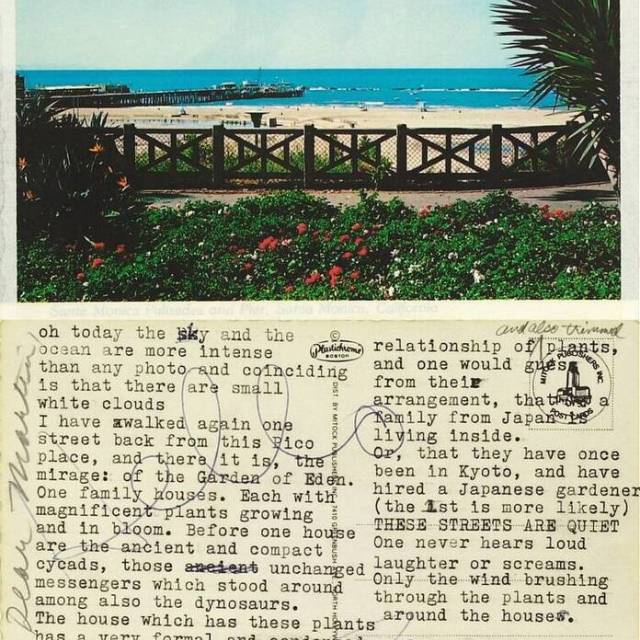 Santa Monica Palisades and Pier, Santa Monica, California
Dear Martin
oh today the sky and the
ocean are more intense
than any photo and coinciding
is that there are small
white clouds
I have walked again one
street back from this Pico
place, and there it is, the
mirage: of the Garden of Eden.
One family houses. Each with
magnificent plants growing
and in bloom. Before one house
are the ancient and compact
cycads, those ancient unchanged
messengers which stood around
among also the dynosaurs.
The house which has these plants
has a very formal and
©
Plastichrome
BOSTON
DIST. BY MITOCK PUBLISHERS INC.
and also trimmed
relationship of plants,
and one would guess
from their
arrangement, that a
family from Japan is
living inside.
Or, that they have once
been in Kyoto, and have
hired a Japanese gardener
(the 1st is more likely)
THESE STREETS ARE QUIET
One never hears loud
laughter or screams.
Only the wind brushing
through the plants and
around the houses.
MITOCK PUBLISHERS INC.
POST CARDS